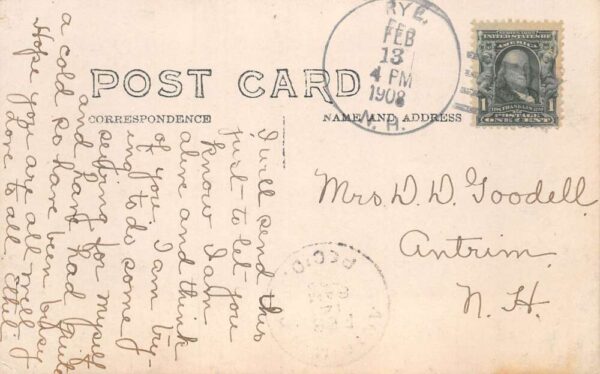 POST CARD
CORRESPONDENCE
NAME AND ADDRESS
RYE,
FEB
13
4 PM
1908
N.H.
SERIES 1902
UNITED STATES OF
AMERICA
1 FRANKLIN 1
POSTAGE
ONE CENT
Mrs. D. D. Goodell.
Antrim.
N. H.
I will send this
just to let you
know I am
alive and think
of you. I am try-
ing to do some
sewing for myself
and have had quite
a cold so have been busy
Hope you are all well,
Love to all Ethel-
REC'D.